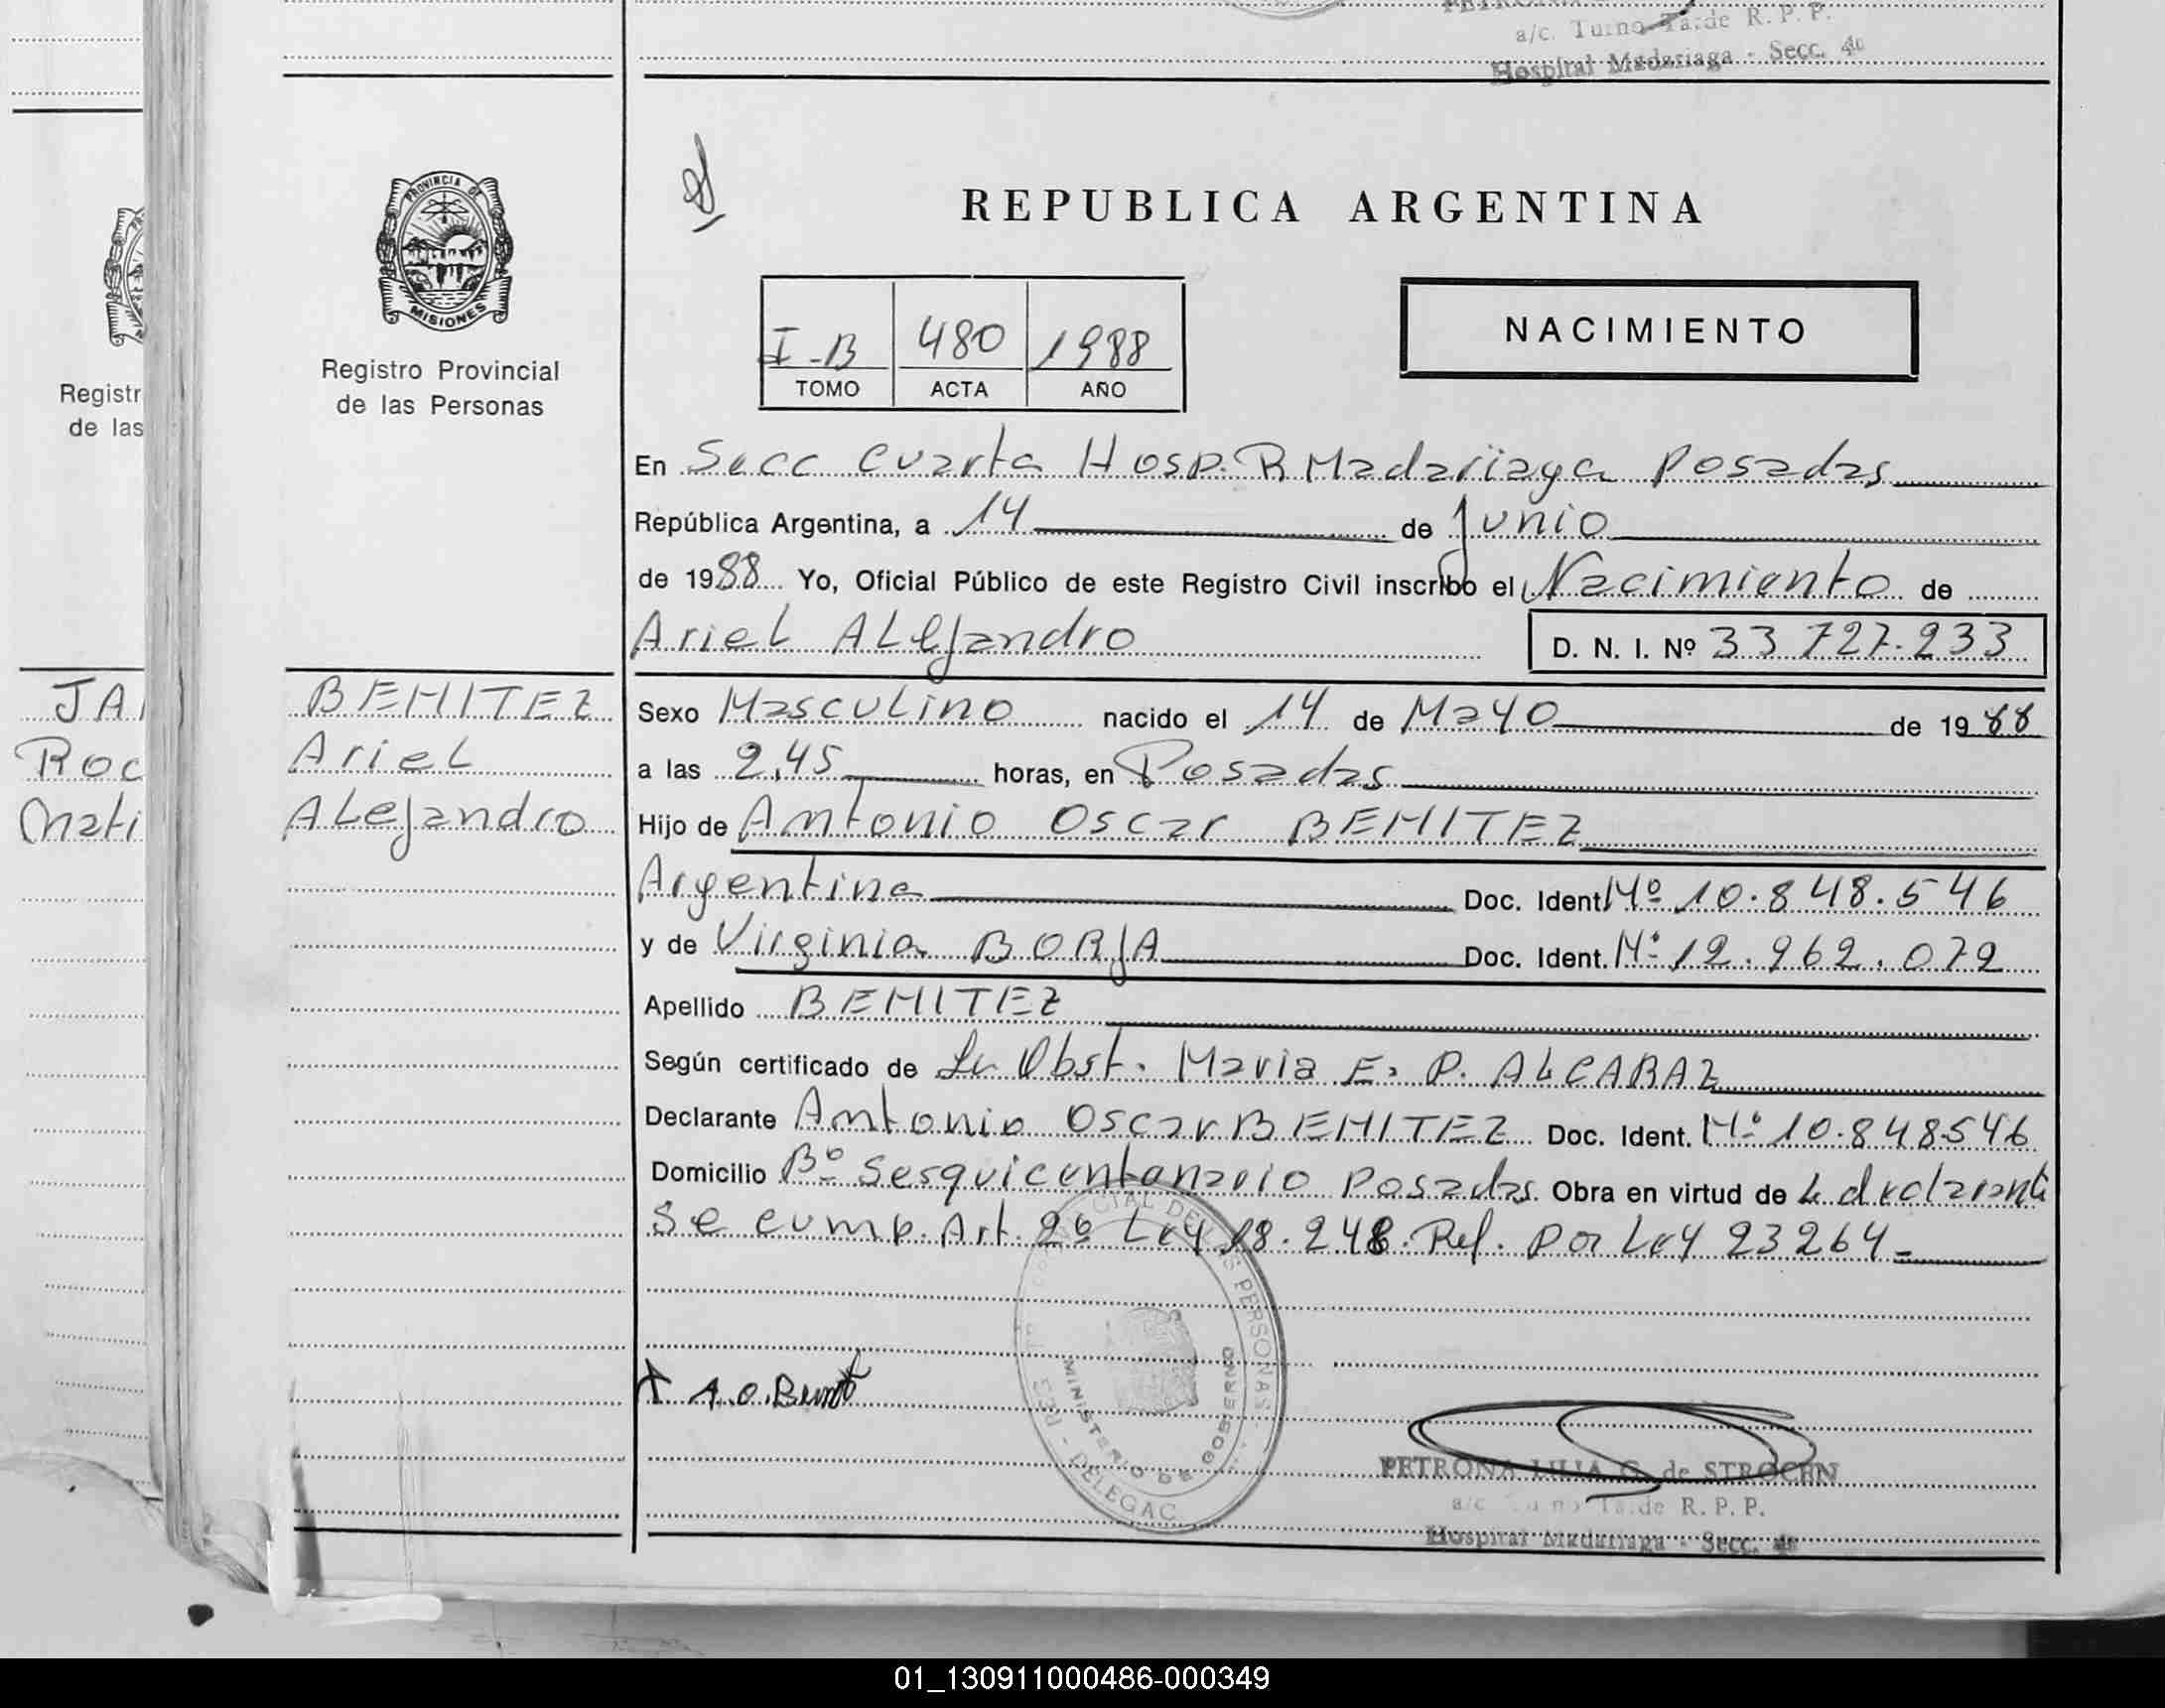 a/c. Turno Tarde R. P. P.
Hospital Madariaga - Secc. 4a
PROVINCIA DE
MISIONES
Registro Provincial
de las Personas
REPUBLICA ARGENTINA
I-B 480 1988
TOMO ACTA AÑO
NACIMIENTO
En Secc Cuarta Hosp. R Madariaga Posadas
República Argentina, a 14 de Junio
de 1988 Yo, Oficial Público de este Registro Civil inscribo el Nacimiento de
Ariel ALejandro D. N. I. Nº 33 727.233
Registr
de las
JA
Roc
Mati
BENITEZ
Ariel
ALejandro
Sexo Masculino nacido el 14 de Mayo de 1988
a las 2,45 horas, en Posadas
Hijo de Antonio Oscar BENITEZ
Argentina Doc. Ident. Nº 10.848.546
y de Virginia BORJA Doc. Ident. Nº 12.962.079
Apellido BENITEZ
Según certificado de La Obst. Maria E. P. ALCARAZ
Declarante Antonio Oscar BENITEZ Doc. Ident. Nº 10.848546
Domicilio Bº Sesquicentenario Posadas Obra en virtud de L declarante
Se cump. Art. 2º Ley 18.248. Ref. por Ley 23264-
PERSONAS
MINISTERIO DE GOBIERNO
DELEGAC
A.O. Benit
PETRONA LILIA G. de STROCEN
a/c Turno Tarde R. P. P.
Hospital Madariaga - Secc. 4a
01_130911000486-000349